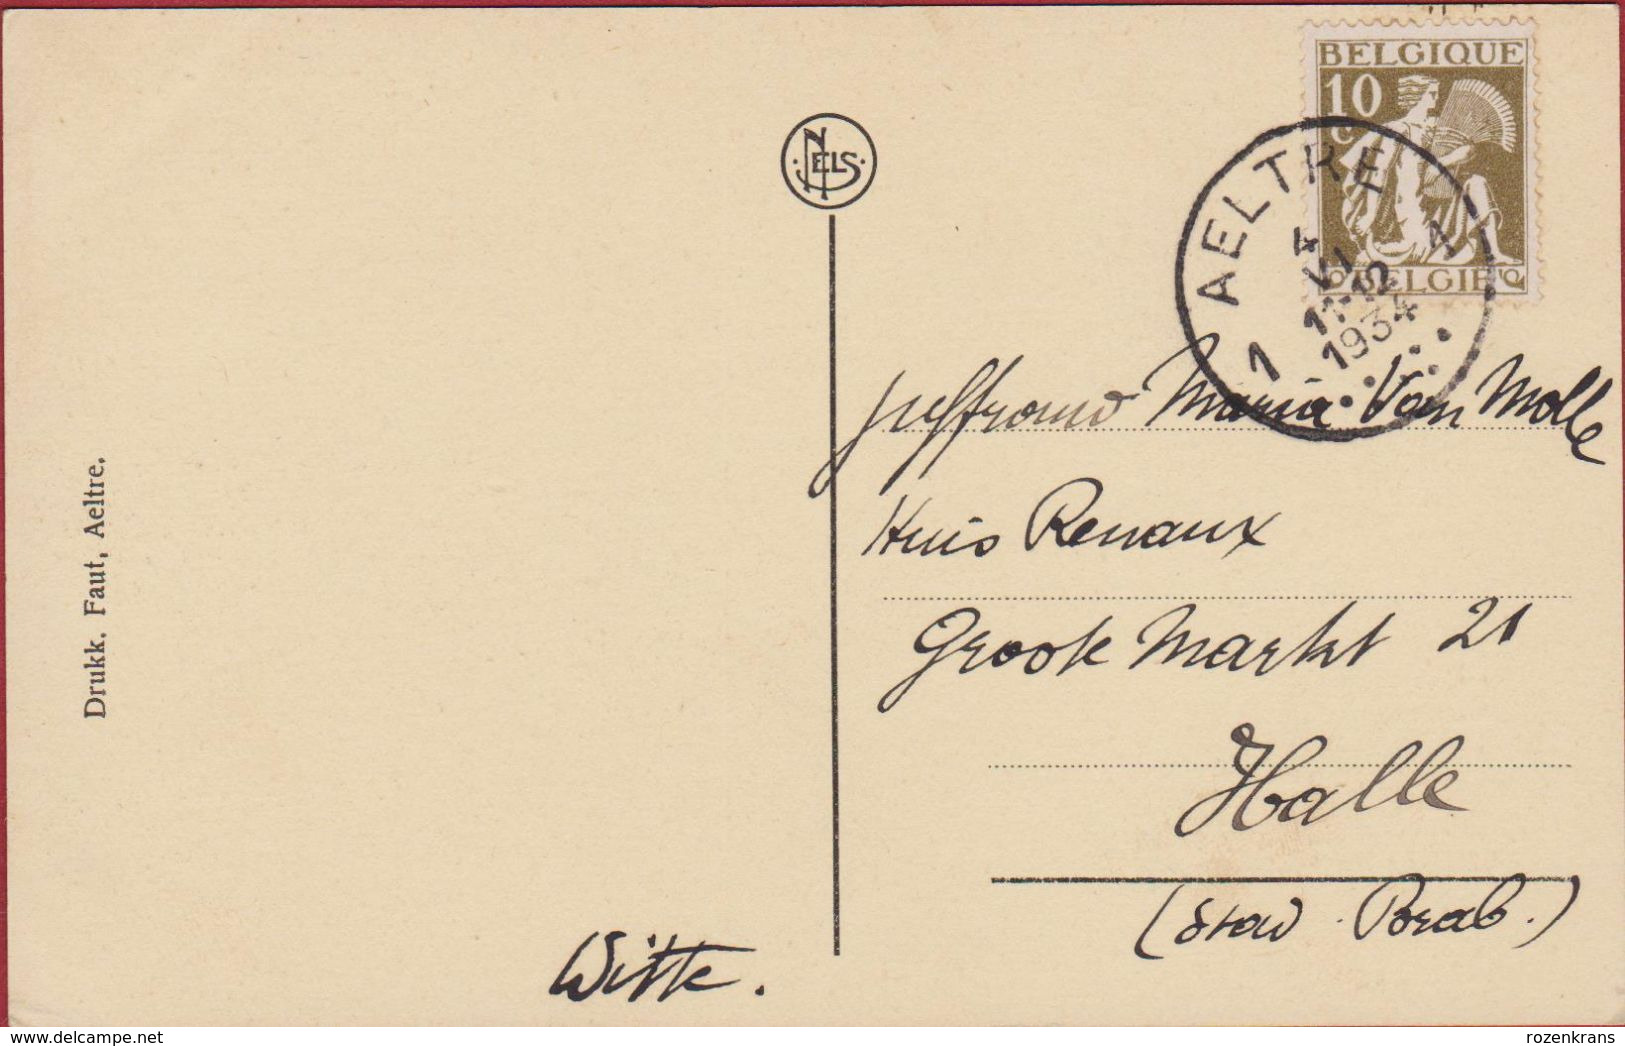 BELGIQUE
10
c
BELGIE
NELS
AELTRE
1 A
4
VI
11-12
1934
Juffrouw Maria Van Molle
Huis Renaux
Groote Markt 21
Halle
(Brab.)
Witte.
Drukk. Faut, Aeltre.
© delcampe.net
rozenkrans